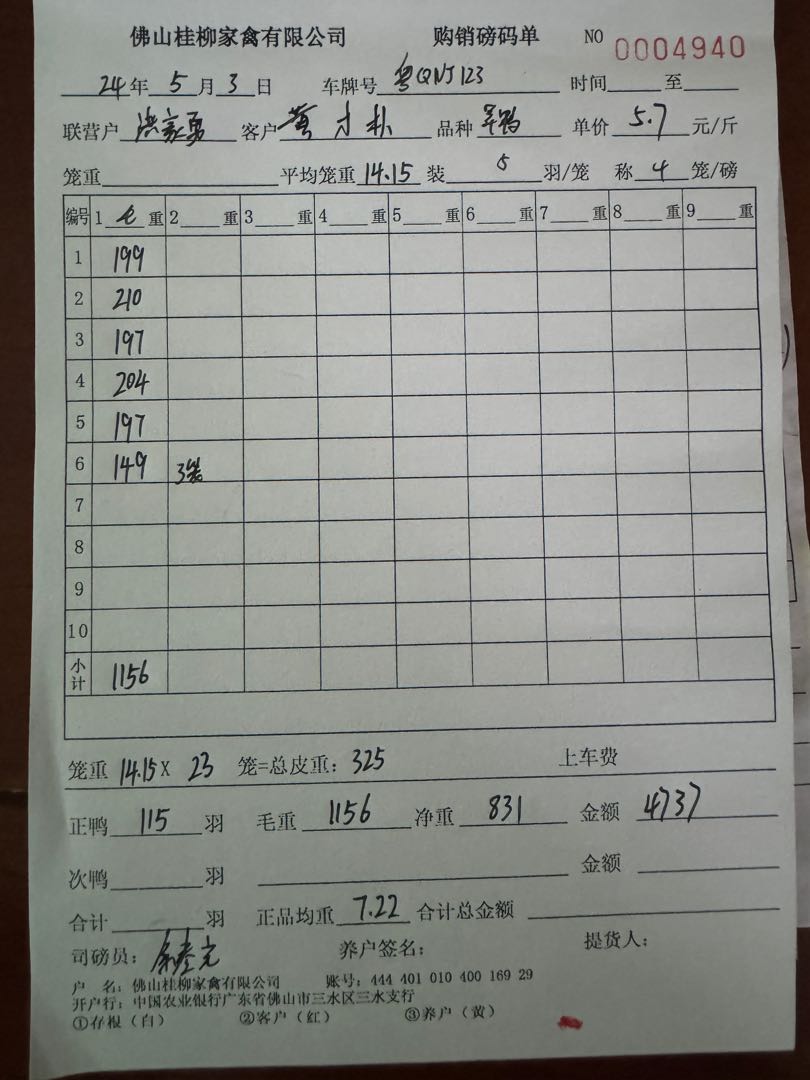 佛山桂柳家禽有限公司 购销磅码单 NO 0004940
24年 5月 3日 车牌号 粤QNJ123 时间 至
联营户 洪家勇 客户 黄才朴 品种 单价 5.7 元/斤
笼重 平均笼重 14.15 装 5 羽/笼 称 4 笼/磅
编号 1 毛 重 2 重 3 重 4 重 5 重 6 重 7 重 8 重 9 重
1 199
2 210
3 197
4 204
5 197
6 149 3笼
7
8
9
10
小计 1156
笼重 14.15 X 23 笼=总皮重: 325 上车费
正鸭 115 羽 毛重 1156 净重 831 金额 4737
次鸭 羽 金额
合计 羽 正品均重 7.22 合计总金额
司磅员: 养户签名: 提货人:
户 名: 佛山桂柳家禽有限公司 账号: 444 401 010 400 169 29
开户行: 中国农业银行广东省佛山市三水区三水支行
①存根（白） ②客户（红） ③养户（黄）